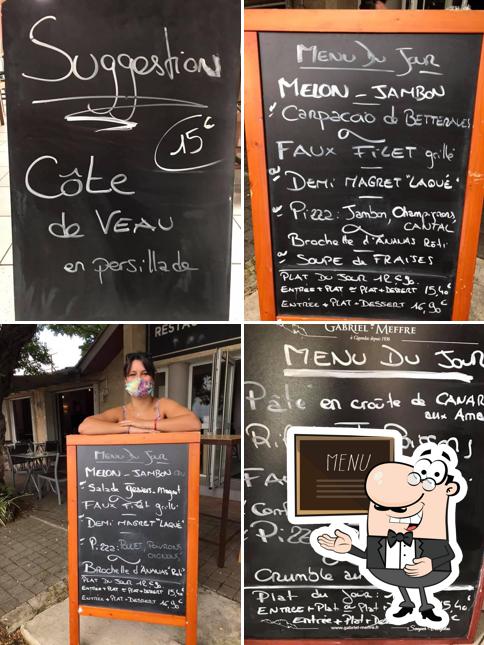 Suggestion
15€
Côte
de VEAU
en persillade
MENU DU JOUR
MELON - JAMBON
Carpacao de BETTERAVES
FAUX FILET grillé
DEMI MAGRET "LAQUÉ"
Pizza: Jambon, Champignons,
CANTAL
Brochette d'ANANAS Roti
SOUPE de FRAISES
PLAT DU JOUR 12€90
ENTREE + PLAT ou PLAT + DESSERT 15,40€
ENTRÉE + PLAT + DESSERT 16,90€
RESTAU
MENU DU JOUR
MELON - JAMBON
Salade Gesiers - magret
FAUX FILET grillé
DEMI MAGRET "LAQUÉ"
Pizza: POULET, POIVRONS
OIGNONS
Brochette d'ANANAS Roti
PLAT DU JOUR 12€90
ENTRÉE + PLAT ou PLAT + DESSERT 15,40€
ENTRÉE + PLAT + DESSERT 16,90€
GABRIEL MEFFRE
à Gigondas depuis 1936
MENU DU JOUR
Pâté en croûte de CANAR
aux Ama
MENU
Crumble au
Plat du jour
ENTREE + Plat ou Plat
5,40€
ENTRÉE + Plat + De
www.gabriel-meffre.fr